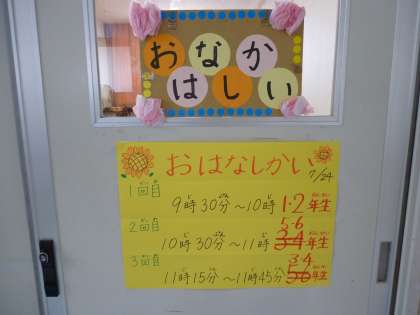 おはなしかい
おはなしかい
7/24
1回目
9時30分〜10時 1・2年生
2回目
5・6
10時30分〜11時 3・4年生
3回目
3・4
11時15分〜11時45分 5・6年生